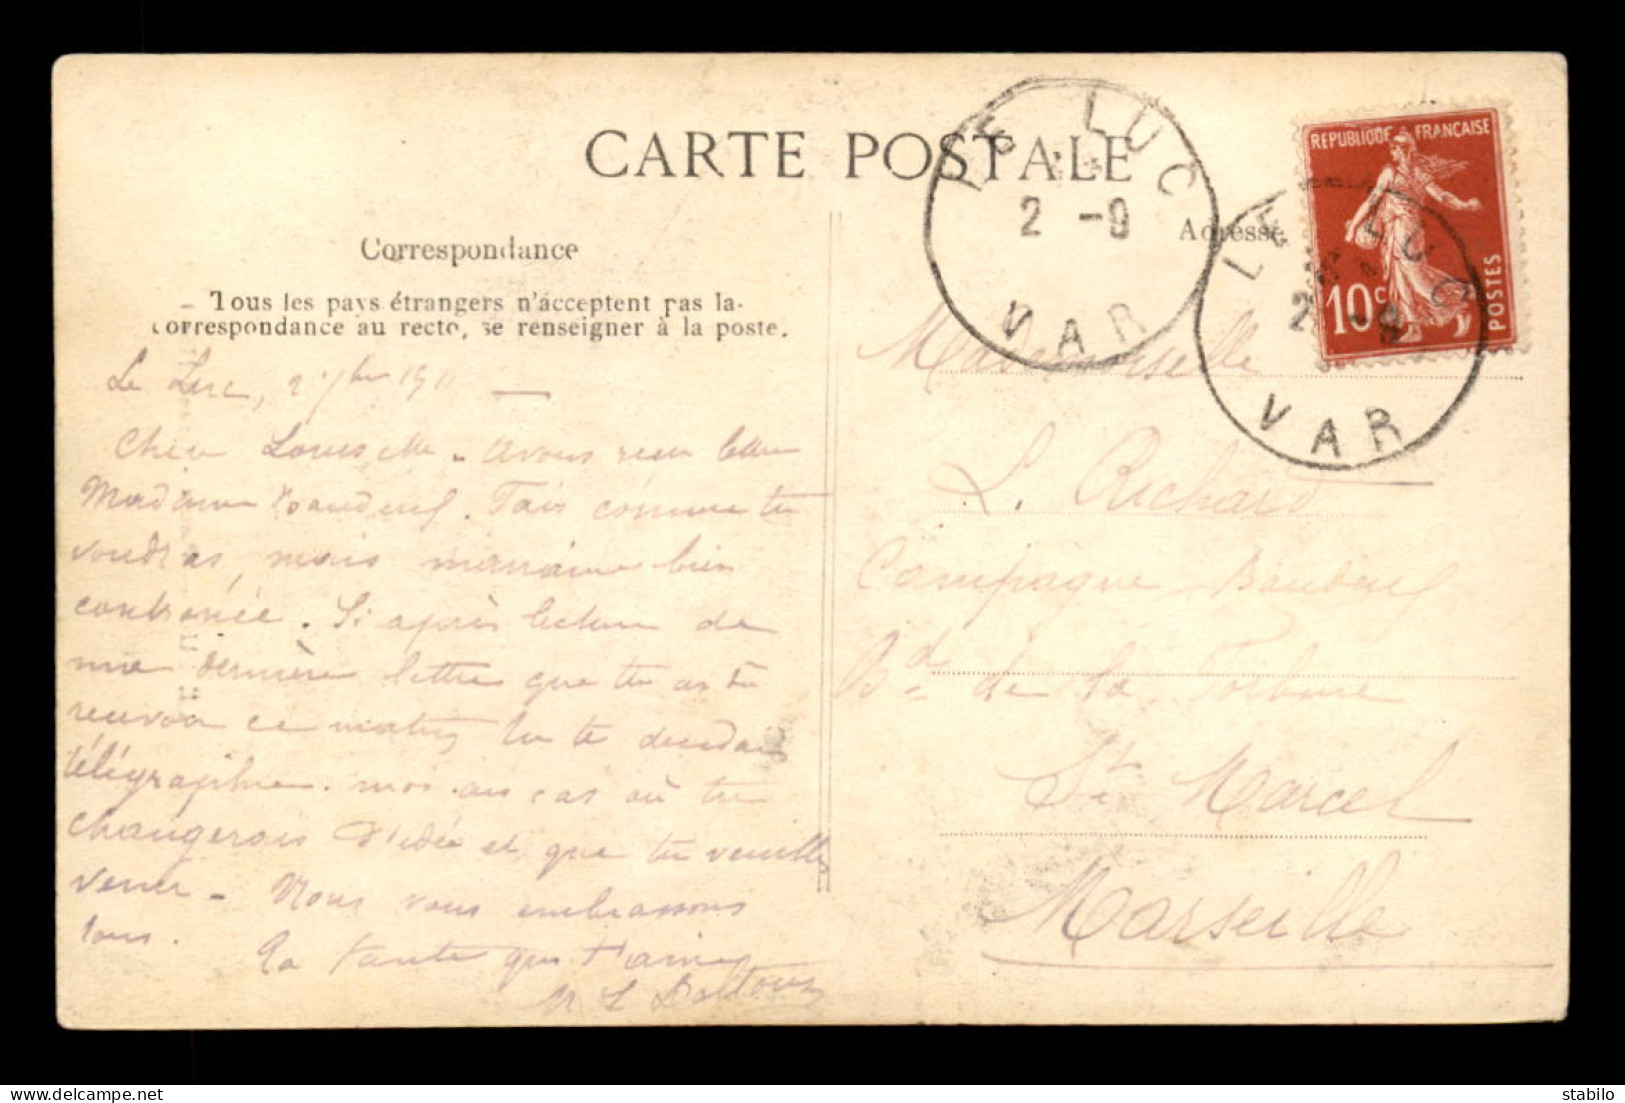 CARTE POSTALE
Correspondance
Tous les pays étrangers n'acceptent pas la
correspondance au recto, se renseigner à la poste.
Le Luc, 2 7bre 1911 —
Chère Louisette - avons reçu lettre
Madame. Fais comme tu
voudras, mais marraine bien
contrariée. Si après lecture de
ma dernière lettre que tu as dû
recevoir ce matin tu te décidais
télégraphie. mos. au cas où tu
changerais d'idée et que tu veuilles
venir - Nous vous embrassons
tous. Ta tante qui t'aime
LE LUC
2 -9
VAR
LE LUC
2 -9
VAR
REPUBLIQUE FRANÇAISE
10c
POSTES
Adresse
Mademoiselle
L. Richard
Campagne
Bd de la
St Marcel
Marseille
stabilo